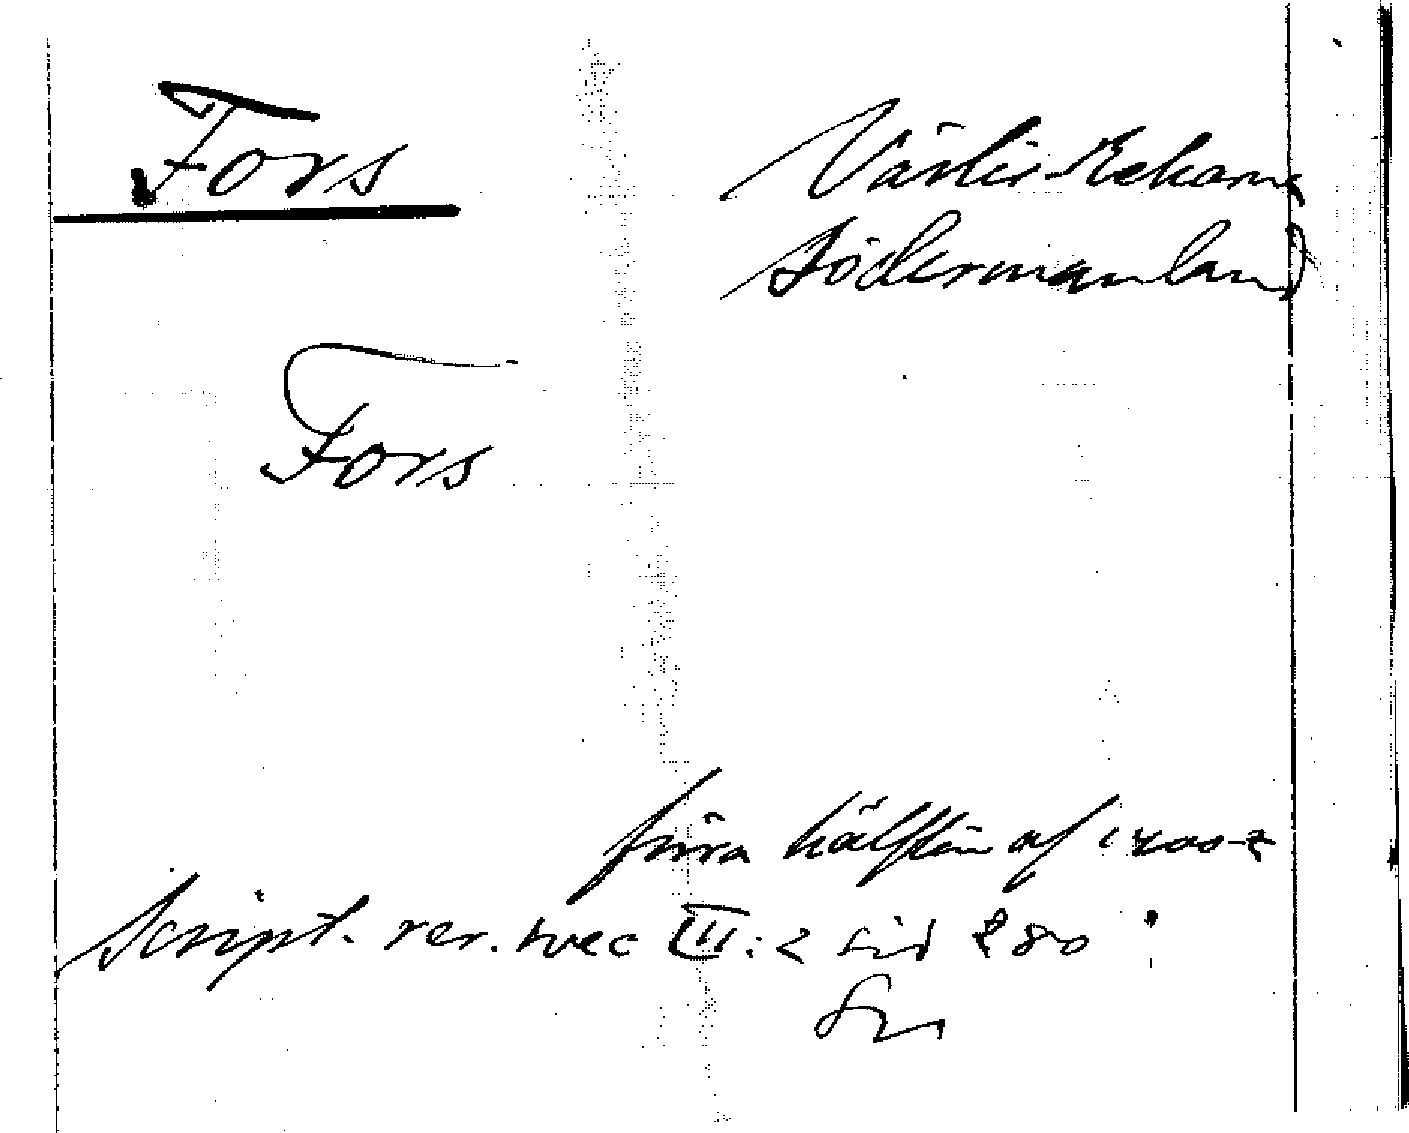 Fors
Väster Rekarne
Södermanland
Fors
förra hälften af 1400-t
Script. rer. svec III:2 sid 280